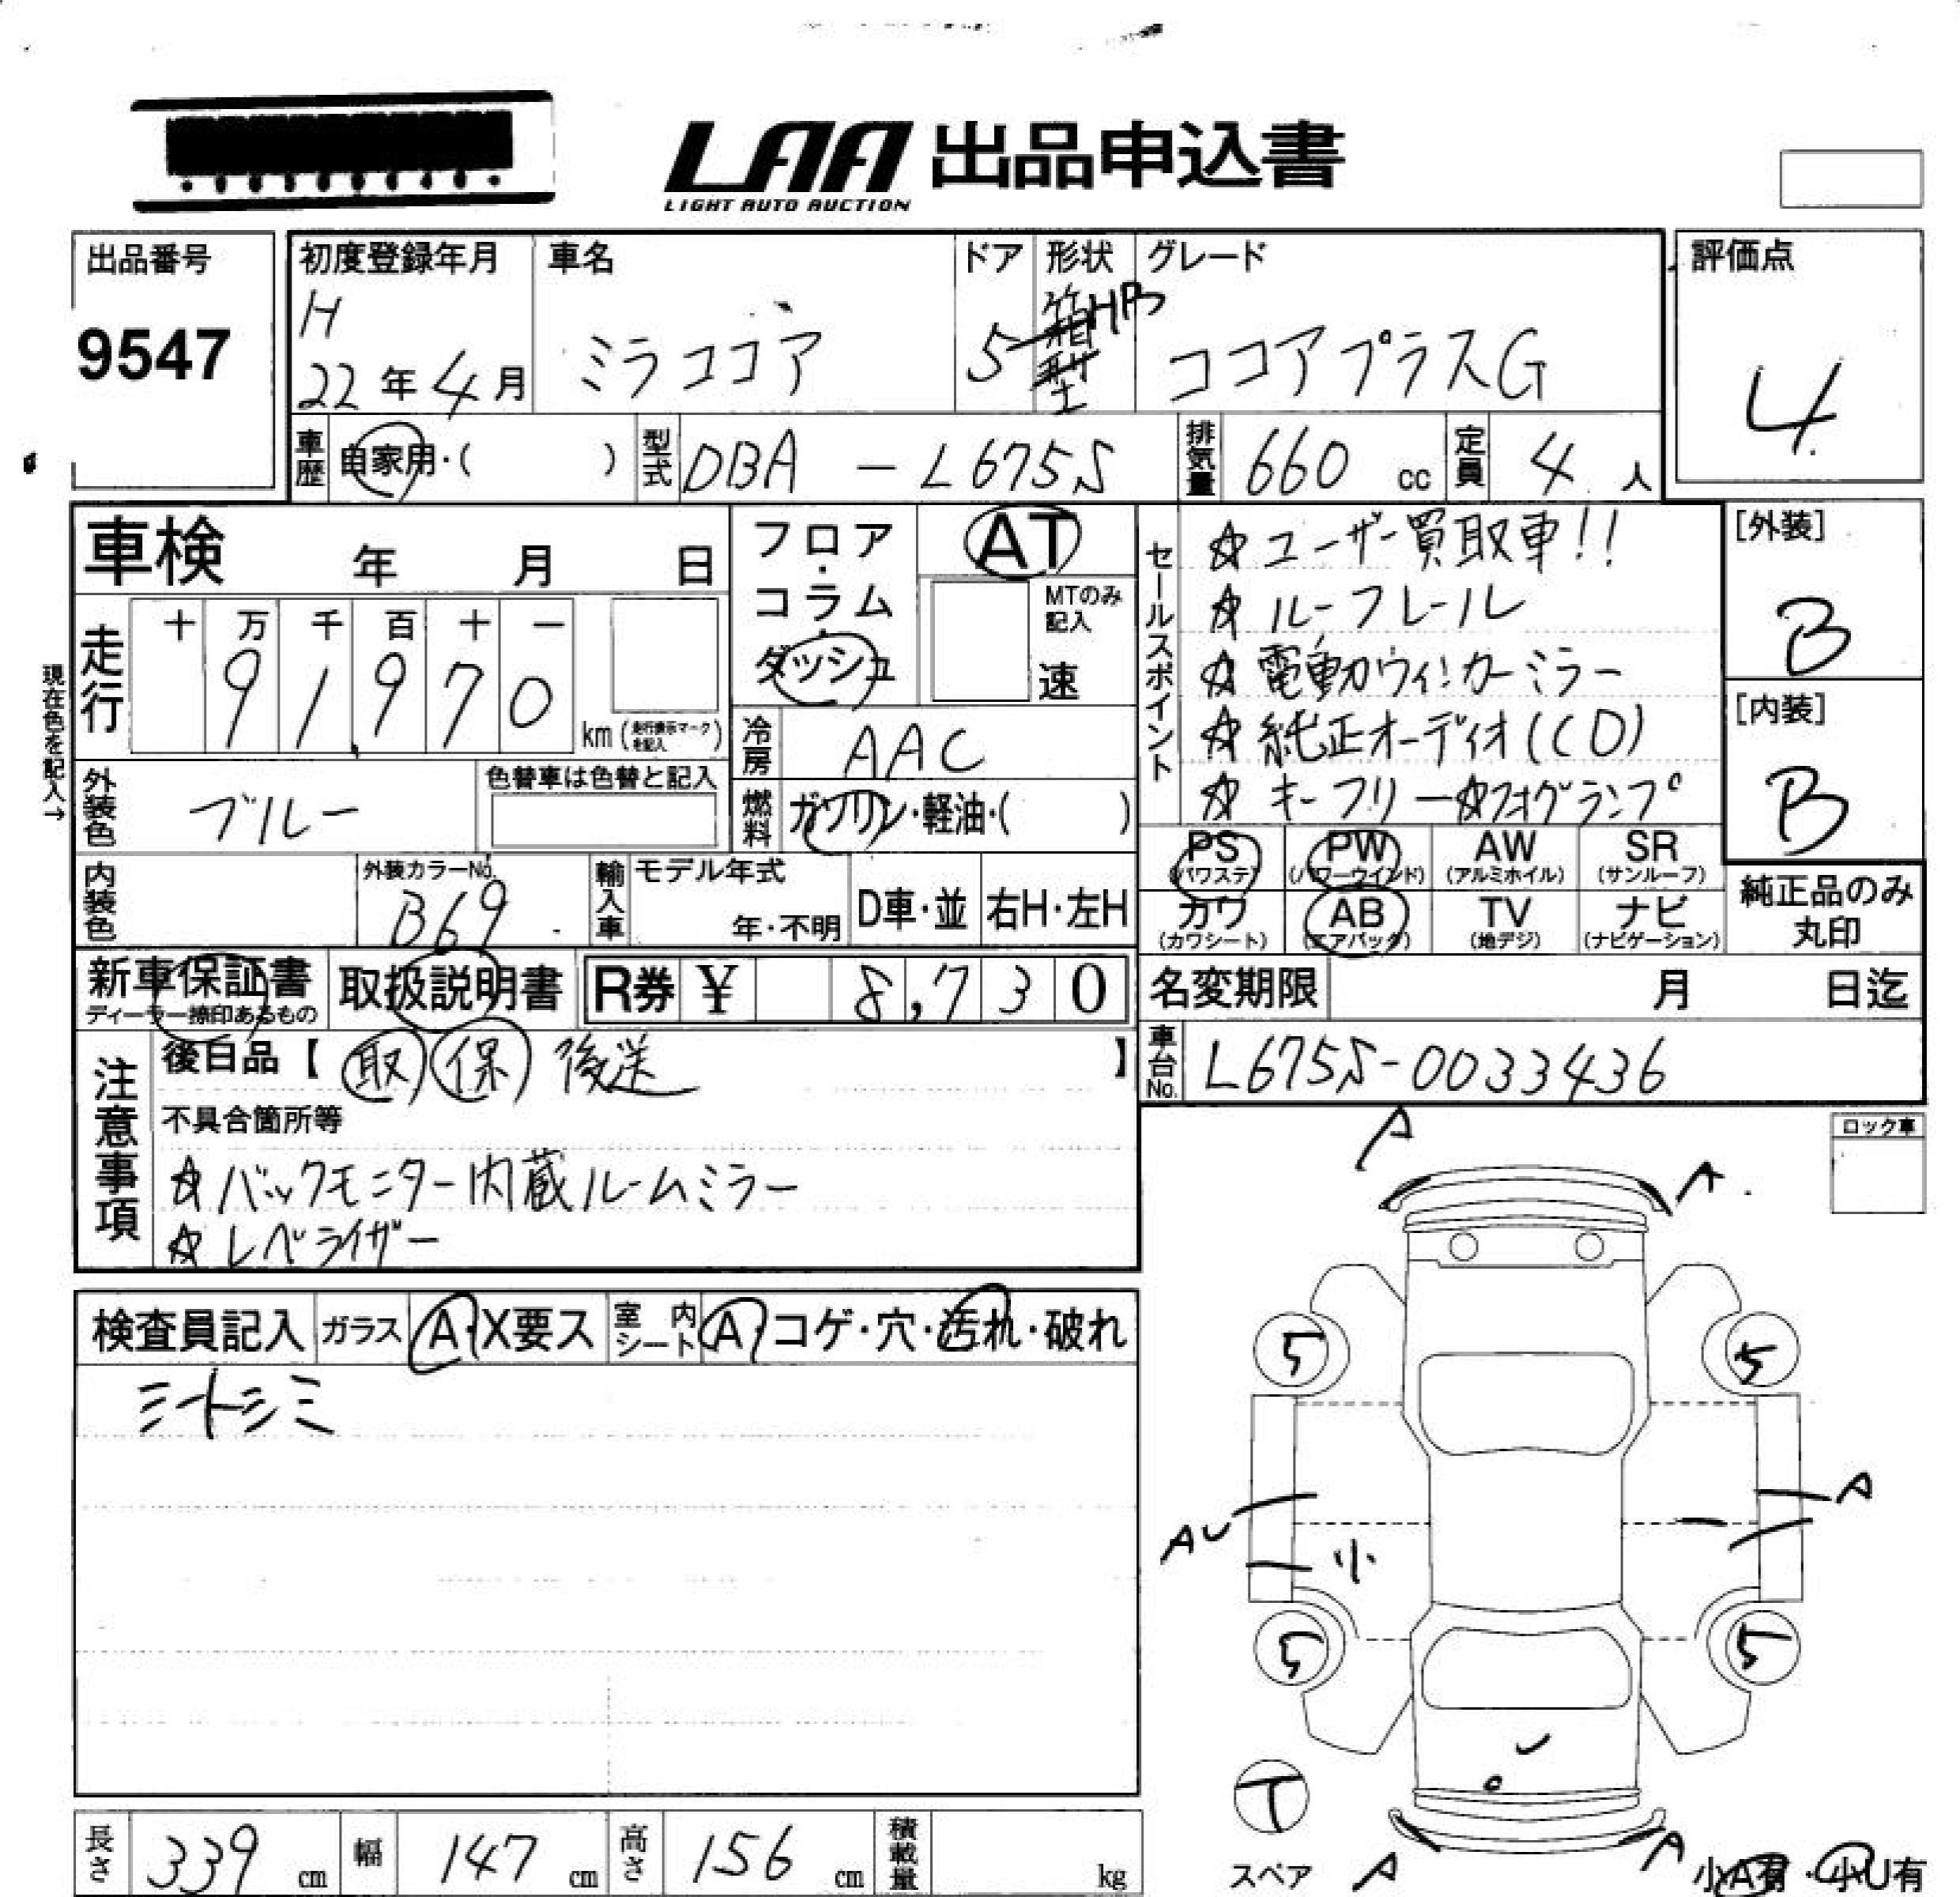 LAA 出品申込書
LIGHT AUTO AUCTION
出品番号
9547
初度登録年月
H
22年4月
車名
ミラココア
ドア
5
形状
箱型 HB
グレード
ココアプラスG
評価点
4
車歴 自家用・( )
型式 DBA - L675S
排気量 660 cc
定員 4 人
車検 年 月 日
現在色を記入→
走行
十 万 千 百 十 一
9 1 9 7 0
km (走行表示マークを記入)
フロア・コラム・ダッシュ
AT
MTのみ記入
速
冷房 AAC
燃料 ガソリン・軽油・( )
外装色 ブルー
色替車は色替と記入
内装色
外装カラーNo.
B69
輸入車 モデル年式
年・不明
D車・並
右H・左H
セールスポイント
☆ユーザー買取車!!
☆ルーフレール
☆電動ウィンカーミラー
☆純正オーディオ(CD)
☆キーフリー☆フォグランプ
[外装]
B
[内装]
B
PS (パワステ)
PW (パワーウインド)
AW (アルミホイル)
SR (サンルーフ)
カワ (カワシート)
AB (エアバッグ)
TV (地デジ)
ナビ (ナビゲーション)
純正品のみ
丸印
新車保証書
ディーラー捺印あるもの
取扱説明書
R券 ¥ 8,730
名変期限 月 日迄
車台No. L675S-0033436
注意事項
後日品【 取 保 後送 】
不具合箇所等
☆バックモニター内蔵ルームミラー
☆レベライザー
ロック車
検査員記入
ガラス A・X要ス
室内シート A コゲ・穴・汚れ・破れ
シートシミ
A
A
5
5
A
AU
小
5
5
T
スペア
A
A
小A有・小U有
長さ 339 cm
幅 147 cm
高さ 156 cm
積載量 kg